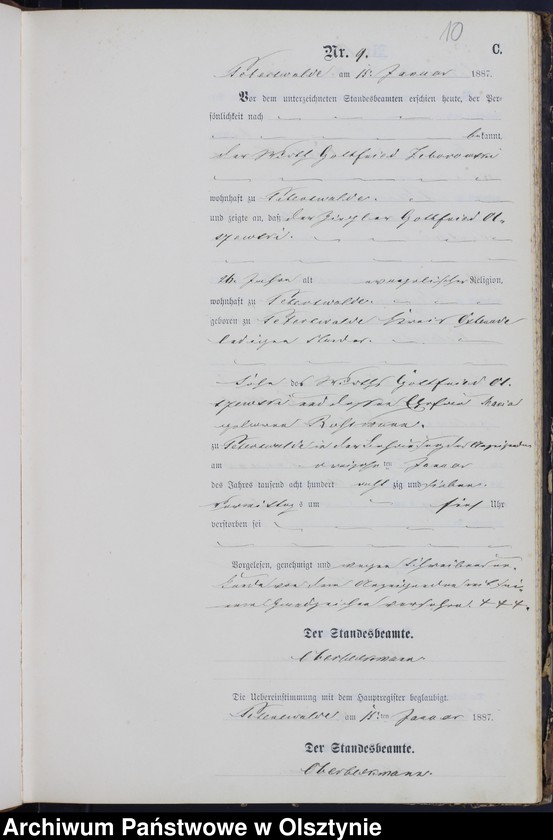 10
Nr. 9.
C.
Peterswalde am 15. Januar 1887.
Vor dem unterzeichneten Standesbeamten erschien heute, der Per-
sönlichkeit nach
bekannt,
der Wirth Gottfried
wohnhaft zu Peterswalde.
und zeigte an, daß der Gottfried
26. Jahre alt evangelischer Religion,
wohnhaft zu Peterswalde.
geboren zu Peterswalde Kreis Osterode
ledigen Standes.
Sohn des Wirths Gottfried
und dessen Ehefrau Maria
geborenen
zu Peterswalde in der Behausung des Anzeigenden
am ten Januar
des Jahres tausend acht hundert acht zig und sieben
Vormittags um fünf Uhr
verstorben sei
Vorgelesen, genehmigt und wegen Schreibensun-
kunde von dem Anzeigenden mit sei-
nem Handzeichen versehen. + + +.
Der Standesbeamte.
Oberbeckmann.
Die Uebereinstimmung mit dem Hauptregister beglaubigt.
Peterswalde am 15. ten Januar 1887.
Der Standesbeamte.
Oberbeckmann.
Archiwum Państwowe w Olsztynie